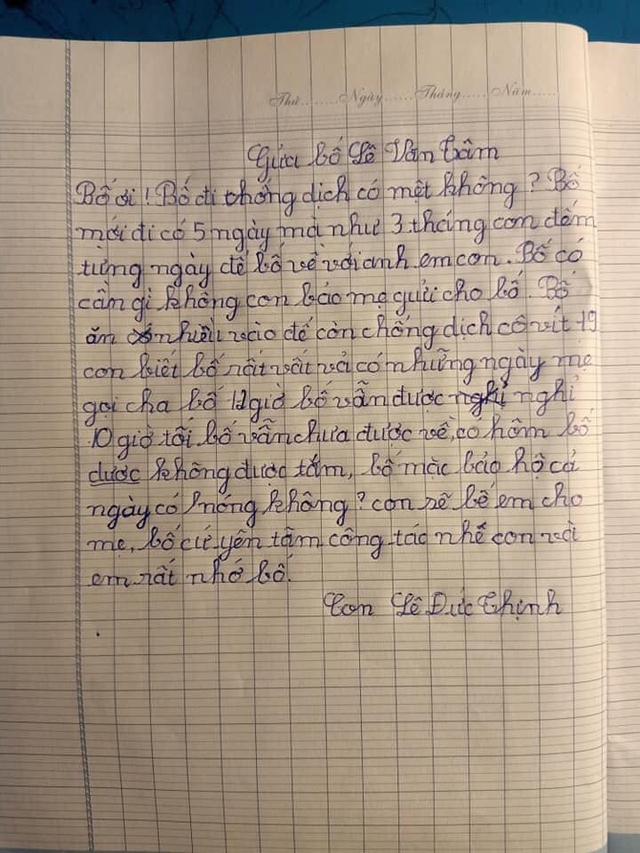 Thứ......Ngày......Tháng......Năm......
Gửa bố Lê Văn Tâm
Bố ơi! Bố đi chống dịch có mệt không? Bố
mới đi có 5 ngày mà như 3 tháng con đếm
từng ngày để bố về với anh em con. Bố có
cần gì không con bảo mẹ gửi cho bố. Bố
ăn nhiều vào để còn chống dịch cô vít 19
con biết bố rất vất vả có những ngày mẹ
gọi cha bố 12 giờ bố vẫn được nghỉ nghỉ
10 giờ tối bố vẫn chưa được về, có hôm bố
được không được tắm, bố mặc bảo hộ cả
ngày có nóng không? con sẽ bế em cho
mẹ, bố cứ yên tâm công tác nhé con và
em rất nhớ bố.
Con Lê Đức Thịnh